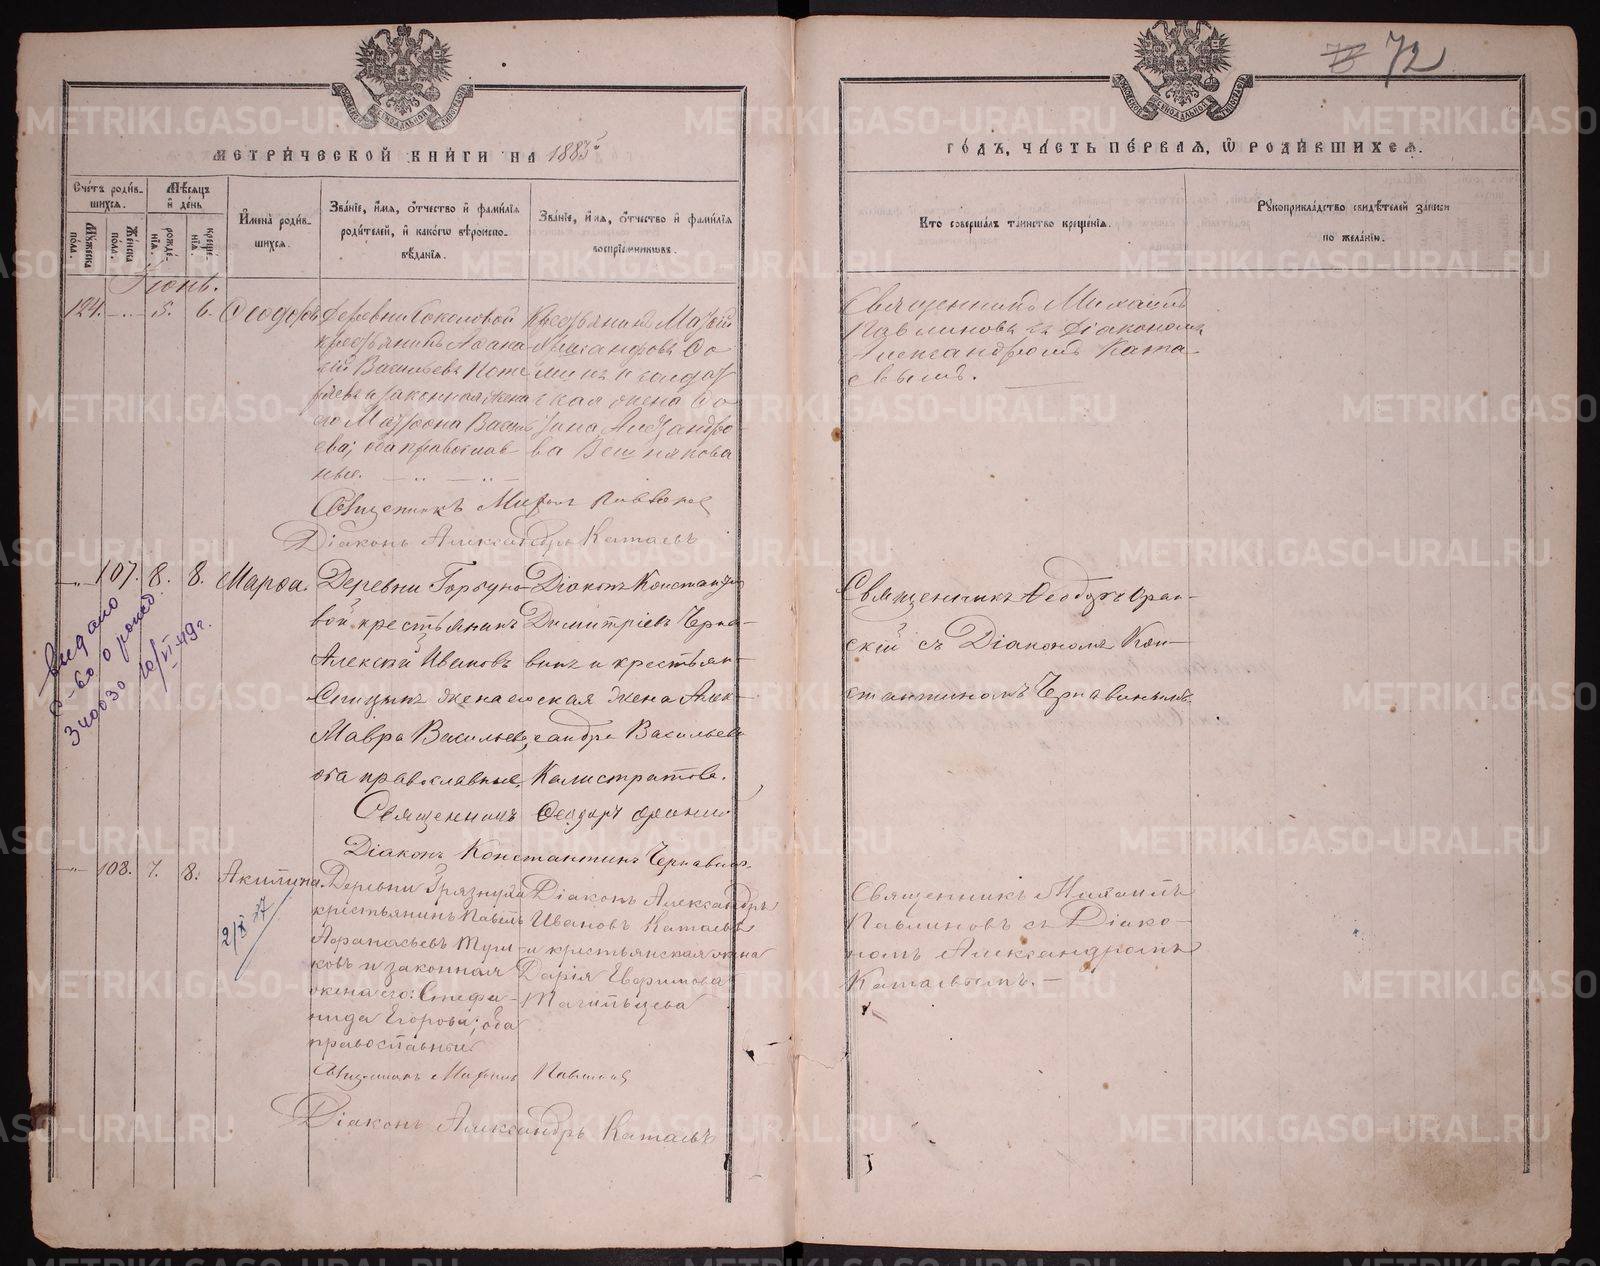 72
МЕТРИ́ЧЕСКОЙ КНИ́ГИ НА 1885й
ГО́ДЪ, ЧА́СТЬ ПЕ́РВАЯ, Ѽ РОДИ́ВШИХСЯ.
Сче́тъ роди́вшихся.
Мѣ́сяцъ и де́нь
Му́жеска по́ла.
Же́нска по́ла.
рожде́нїя.
креще́нїя.
И́мена роди́вшихся.
Зва́нїе, и́мя, о́тчество и фами́лїя
роди́телей, и како́гѡ вѣроиспо-
вѣ́данїя.
Зва́нїе, и́мя, о́тчество и фами́лїя
воспрїе́мниковъ.
Кто соверша́лъ та́инство креще́нїя.
Рꙋкоприкла́дство свидѣ́телей за́писи
по жела́нїю.
Іюнь.
124. — 5. 6. Ѳеодоръ
деревни Соколовой
крестьянинъ Аѳана-
сій Васильевъ
и законная жена
его Матрона Василь
ева; оба православ
ные.
Крестьянинъ
Александровъ
и солдат
ская жена
Александро
ва Вешнякова
Священникъ Михаилъ
Павлиновъ съ Діакономъ
Александромъ Ката-
евымъ.
Священникъ Михаил Павлинов
Діаконъ Александръ Катаевъ
— 107. 8. 8. Марѳа.
Деревни Горбуно-
вой крестьянинъ
Алексѣй Ивановъ
Спицынъ жена его
Мавра Васильева,
оба православные.
Діаконъ Константинъ
Димитріевъ Черна-
винъ и крестьян-
ская жена Алек-
сандра Васильева
Калистратова.
Священникъ Ѳеодоръ
скій съ Діакономъ Кон-
стантиномъ Чернавинымъ.
Священникъ Ѳеодоръ
Діаконъ Константинъ Чернавинъ
выдано
с-во о рожд.
10/VI-49г.
— 108. 7. 8. Акилина.
2/X 37
Деревни Грязнухи
крестьянинъ Павелъ
Аѳанасьевъ
ковъ и законная
жена его: Стефа-
нида Егорова; оба
православные
Діаконъ Александръ
Ивановъ Катаевъ
и крестьянская жена
Дарія Евфимова
Тагильцева
Священникъ Михаилъ
Павлиновъ съ Діако-
номъ Александромъ
Катаевымъ.—
Священникъ Михаилъ Павлинов
Діаконъ Александръ Катаевъ
METRIKI.GASO-URAL.RU